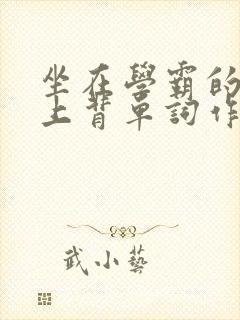 坐在學霸的
上背單詞作
武小藝